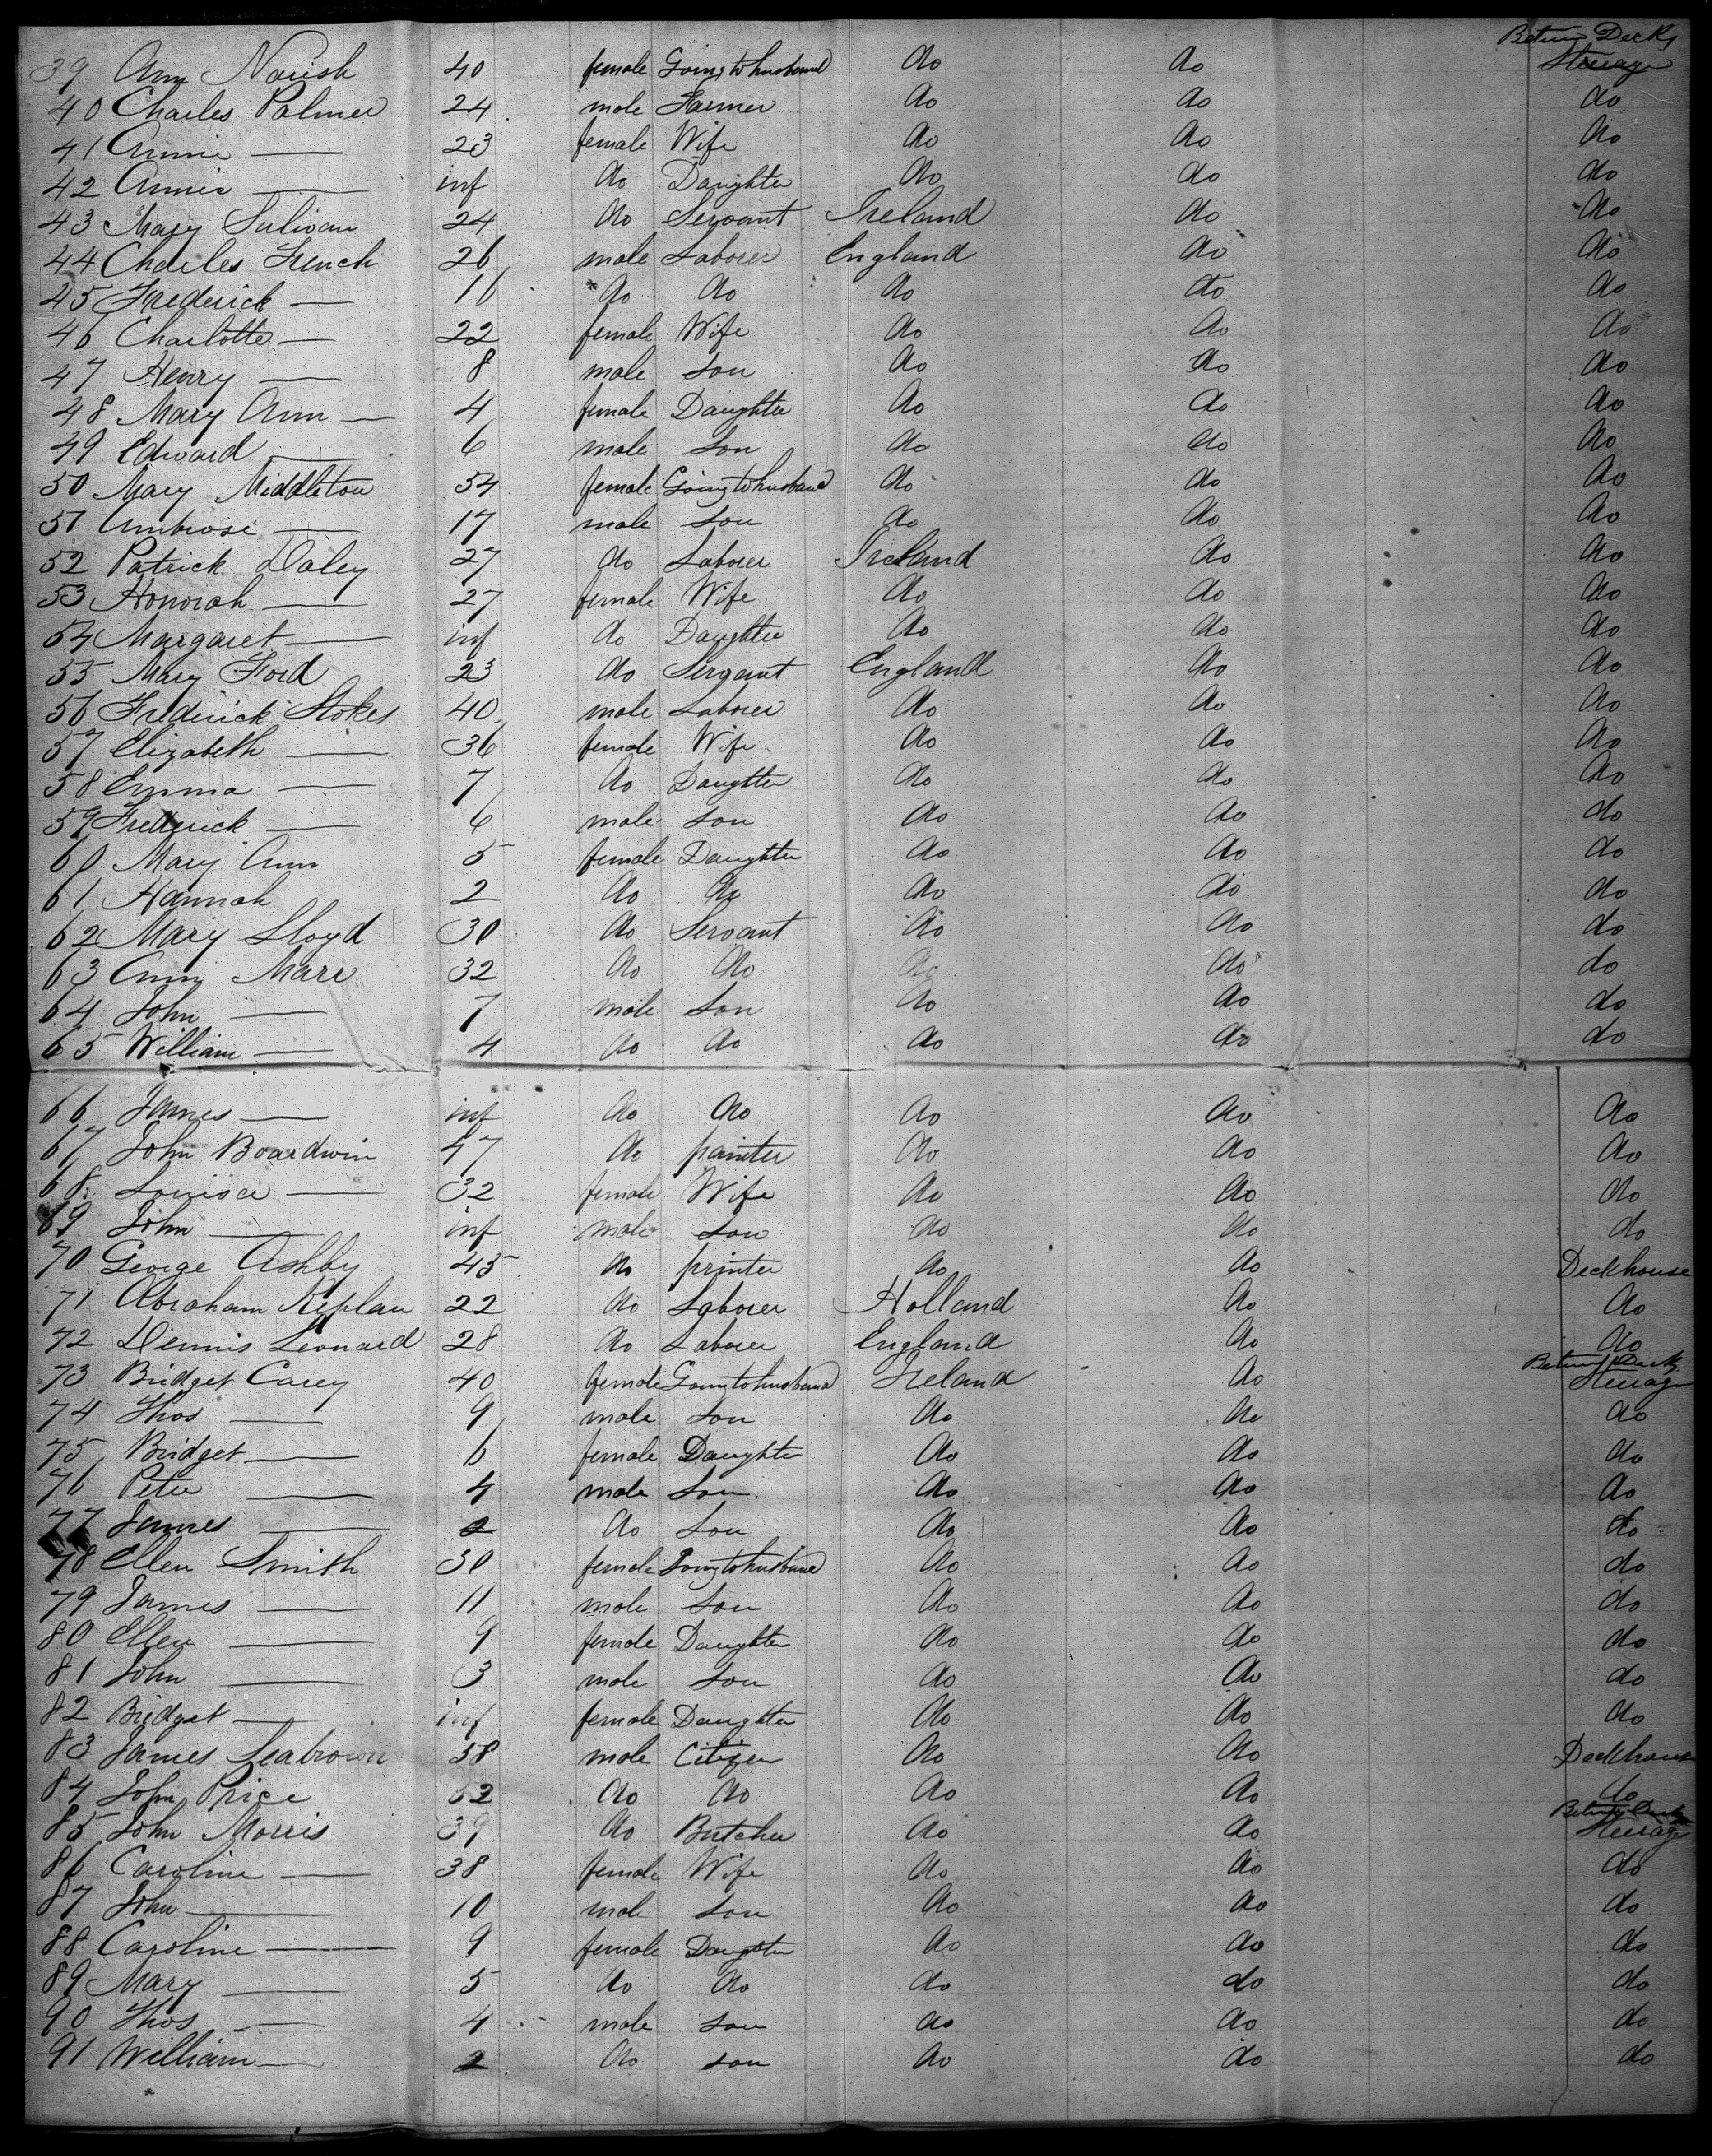 Betwn Decks
39 Ann Narish 40 female Going to husband do do Steerage
40 Charles Palmer 24 male Farmer do do do
41 Annie — 23 female Wife do do do
42 Annie — inf do Daughter do do do
43 Mary Sulivan 24 do Servant Ireland do do
44 Charles French 26 male Laborer England do do
45 Frederick — 16 do do do do do
46 Charlotte — 22 female Wife do do do
47 Henry — 8 male Son do do do
48 Mary Ann — 4 female Daughter do do do
49 Edward — 6 male Son do do do
50 Mary Middleton 54 female Going to husband do do do
51 Ambrose — 17 male Son do do do
52 Patrick Daley 27 do Laborer Ireland do do
53 Honorah — 27 female Wife do do do
54 Margaret — inf do Daughter do do do
55 Mary Ford 23 do Servant England do do
56 Frederick Stokes 40 male Laborer do do do
57 Elizabeth — 36 female Wife do do do
58 Emma — 7 do Daughter do do do
59 Frederick — 6 male Son do do do
60 Mary Ann 5 female Daughter do do do
61 Hannah 2 do do do do do
62 Mary Lloyd 30 do Servant do do do
63 Ann Marr 32 do do do do do
64 John — 7 male Son do do do
65 William — 4 do do do do do
66 James — inf do do do do do
67 John Boardwin 47 do painter do do do
68 Louisa — 32 female Wife do do do
69 John — inf male Son do do do
70 George Ashby 45 do printer do do Deckhouse
71 Abraham Keplau 22 do Laborer Holland do do
72 Dennis Leonard 28 do Laborer England do do
Betwn Decks
73 Bridget Carey 40 female Going to husband Ireland do Steerage
74 Thos — 9 male Son do do do
75 Bridget — 6 female Daughter do do do
76 Peter — 4 male Son do do do
77 James — 2 do Son do do do
78 Ellen Smith 30 female Going to husband do do do
79 James — 11 male Son do do do
80 Ellen — 9 female Daughter do do do
81 John — 3 male Son do do do
82 Bridget — inf female Daughter do do do
83 James Seabrown 38 male Citizen do do Deckhouse
84 John Price 52 do do do do do
Betwn Decks
85 John Morris 39 do Butcher do do Steerage
86 Caroline — 38 female Wife do do do
87 John — 10 male Son do do do
88 Caroline — 9 female Daughter do do do
89 Mary — 5 do do do do do
90 Thos — 4 male Son do do do
91 William — 2 do Son do do do